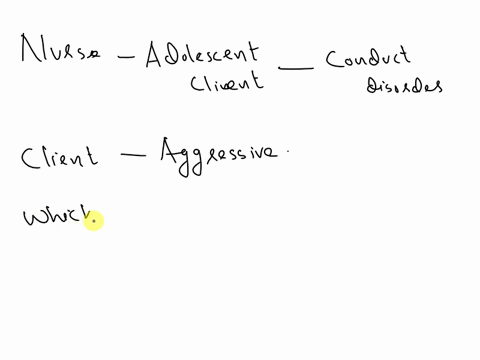 Nurse — Adolescent Client — Conduct disorder
Client — Aggressive.
Which